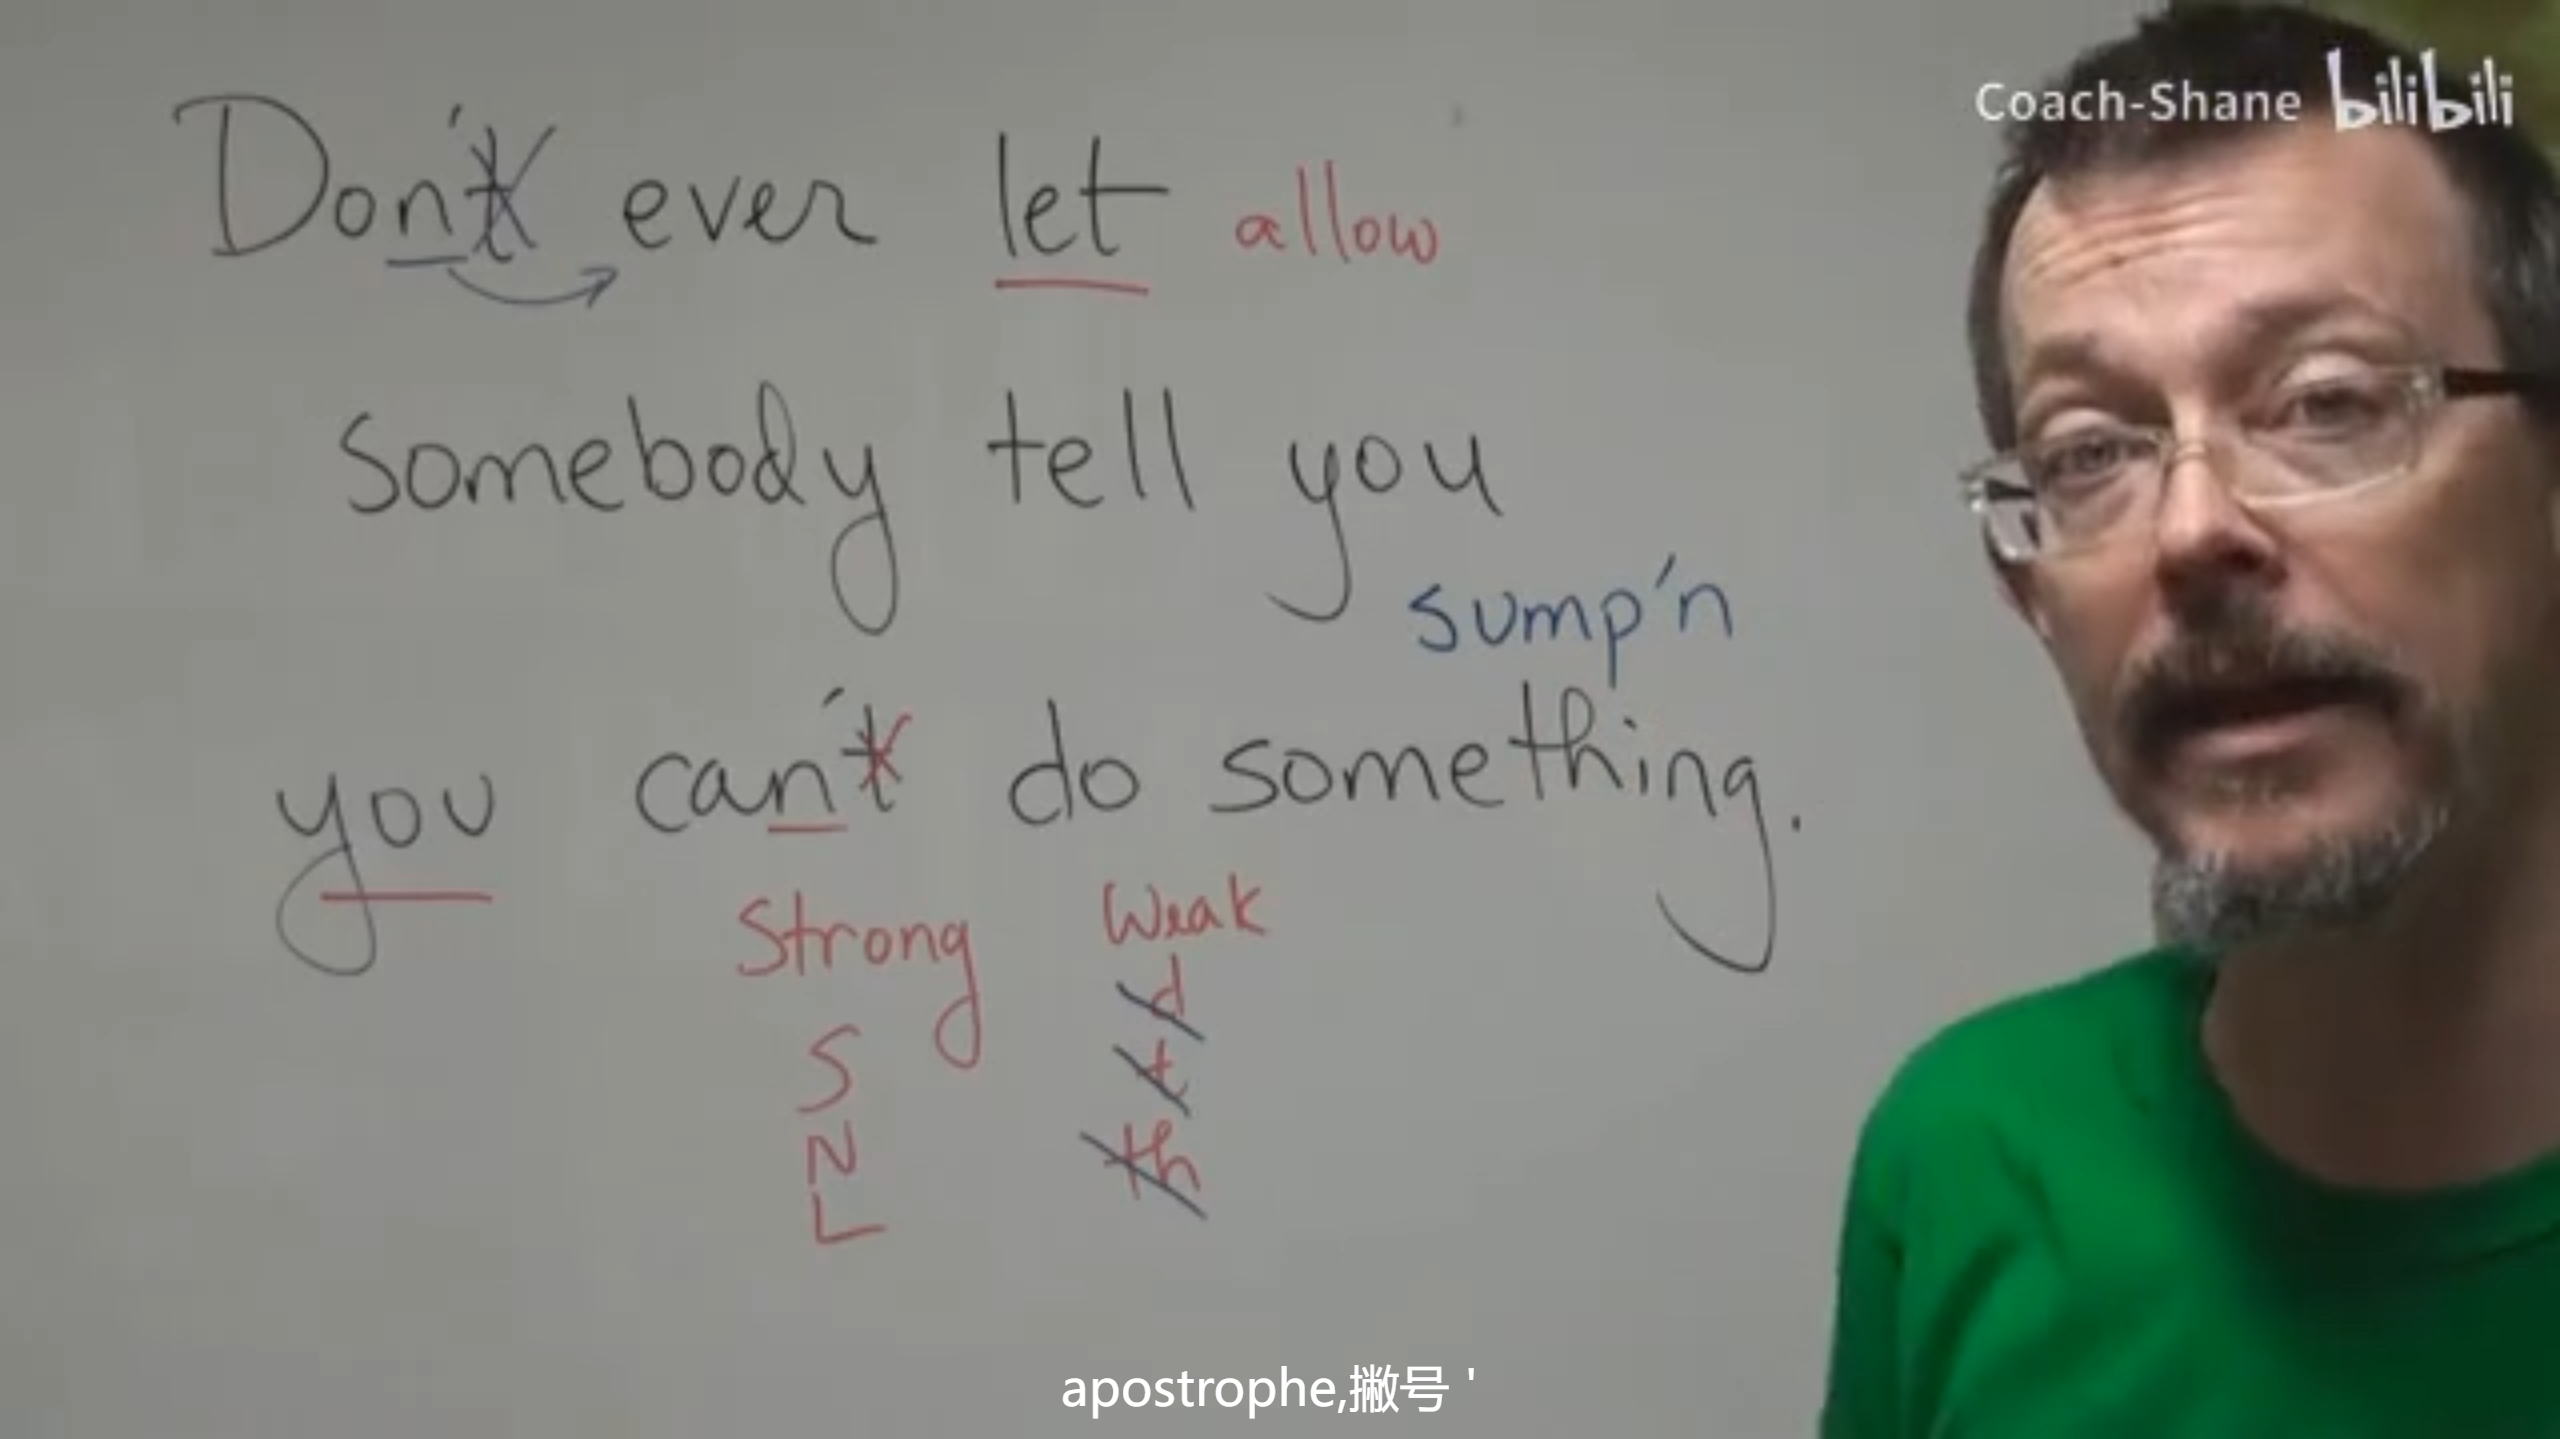 Coach-Shane bilibili
Don't ever let allow
somebody tell you
sump'n
you can't do something.
Strong Weak
S d
N t
L th
apostrophe,撇号 '